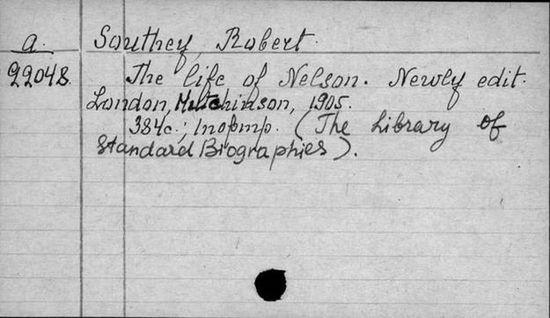 a. Southey, Robert.
22048. The life of Nelson. Newly edit.
London, Hutchinson, 1905.
384с.; 1 портр. (The Library of
Standard Biographies).